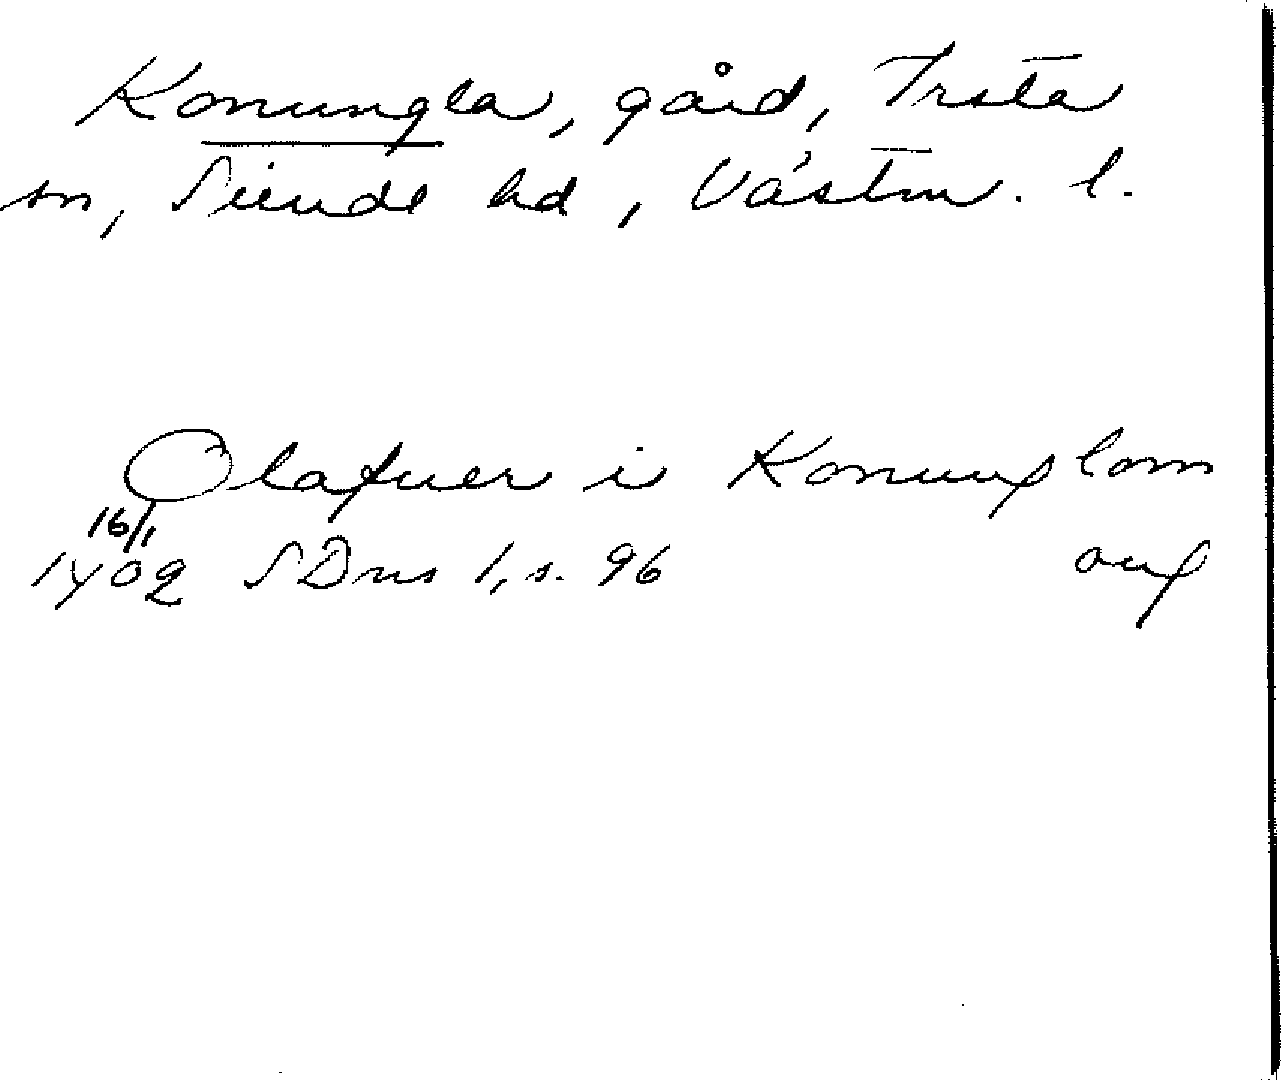 Konungla, gård, Irsta
sn, Siende hd, Västm. l.
Olafuer i Konunglom
16/1
1402 SDns 1, s. 96 or